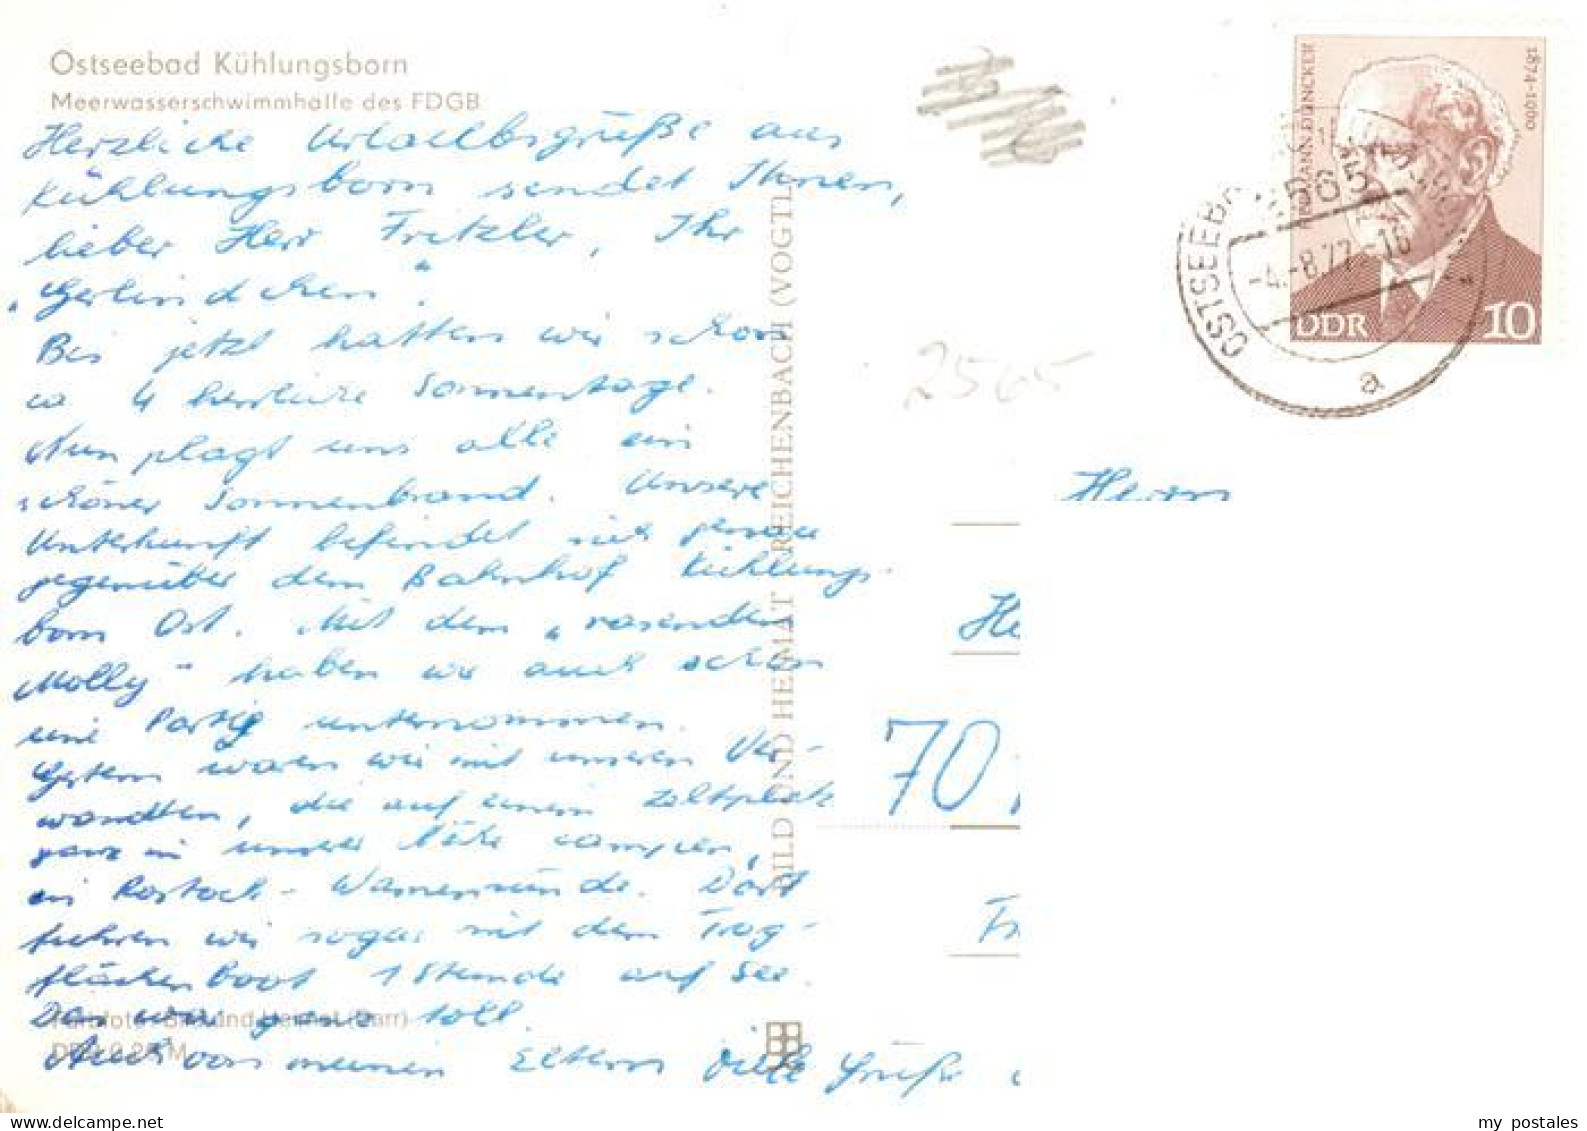 Ostseebad Kühlungsborn
Meerwasserschwimmhalle des FDGB
Herzliche Urlaubsgrüße aus
Kühlungsborn sendet Ihnen,
lieber Herr Fritzler, Ihr
„Gerlindchen".
Bis jetzt hatten wir schon
ca 4 herrliche Sonnentage.
Nun plagt uns alle ein
schöner Sonnenbrand. Unsere
Unterkunft befindet sich genau
gegenüber dem Bahnhof Kühlungs-
born Ost. Mit dem „rasenden
Molly" haben wir auch schon
eine Partie unternommen.
Gestern waren wir mit unseren Ver-
wandten, die auf einem Zeltplatz
ganz in unserer Nähe campen,
in Rostock-Warnemünde. Dort
fuhren wir sogar mit dem Trag-
flächenboot 1 Stunde auf See.
Das war ganz toll.
Auch von meinen Eltern viele Grüße
Farbfoto: Bild und Heimat (Darr)
BILD UND HEIMAT REICHENBACH (VOGTL
HERMANN DUNCKER
1874-1960
DDR 10
OSTSEEBAD
2565
-4.-8.77-16
a
2565
Herrn
He
70
Fr
my postales